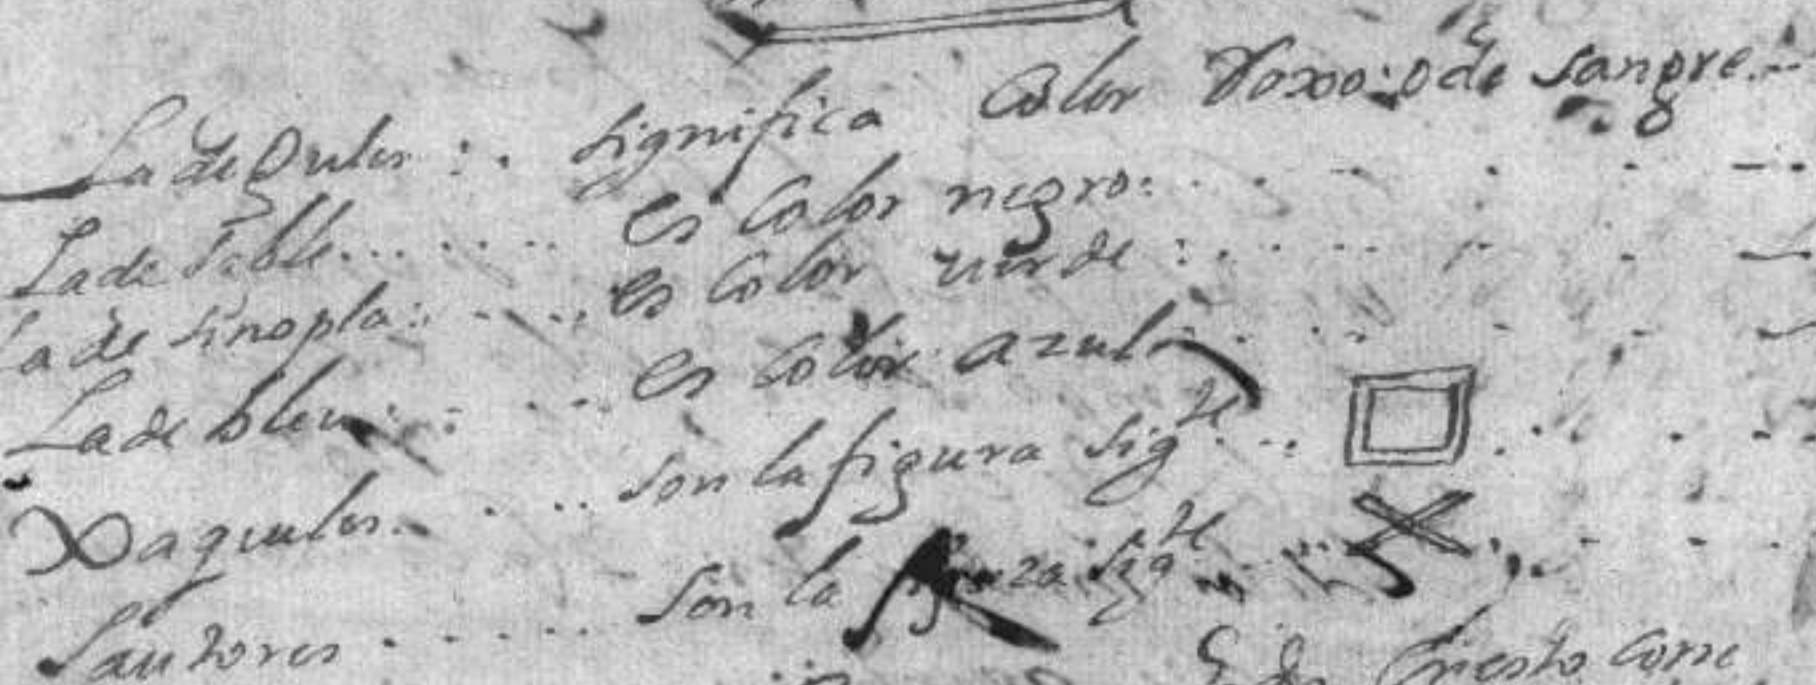 La de Gules : . significa Color Roxo: o de sangre.
La de Sable....... es Color negro:
La de sinopla:.... es Color verde :
La de bleu.: : ... es Color azul
Xaqueles. ... son la figura sigte...
Sautores ...... son la figura sigte...
Corre